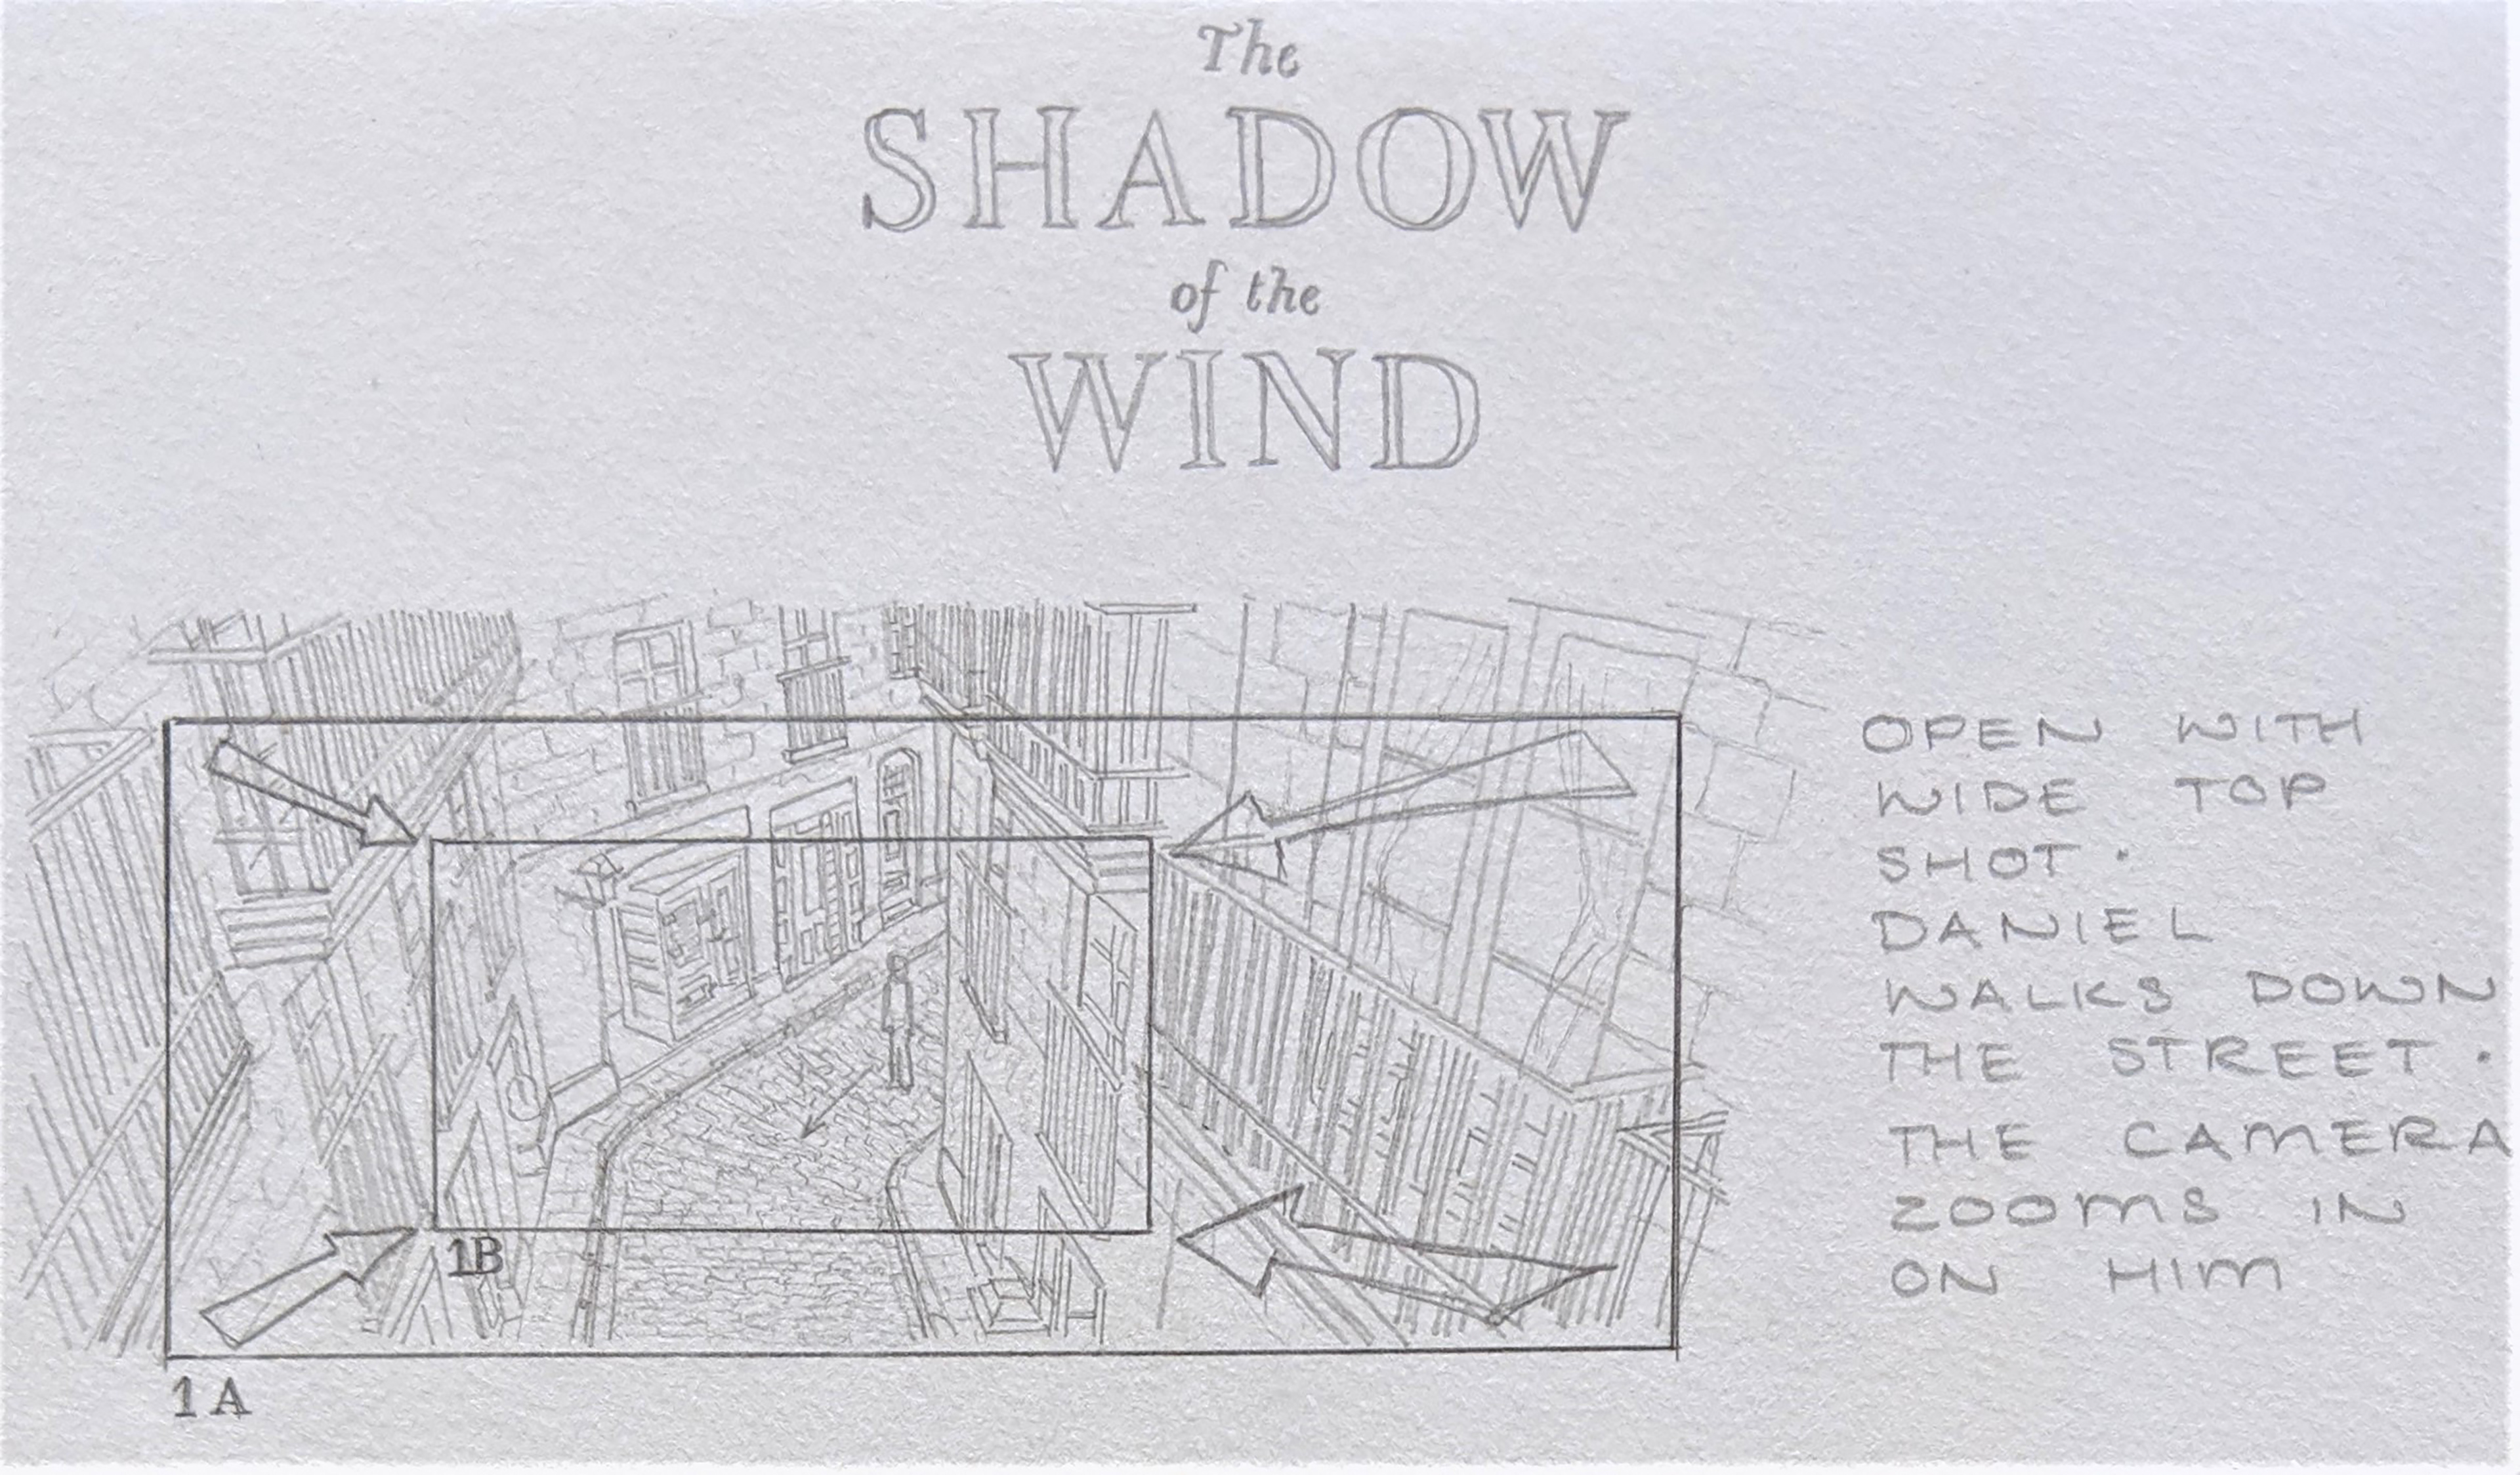 The
SHADOW
of the
WIND
OPEN WITH
WIDE TOP
SHOT.
DANIEL
WALKS DOWN
THE STREET.
THE CAMERA
ZOOMS IN
ON HIM
1B
1A